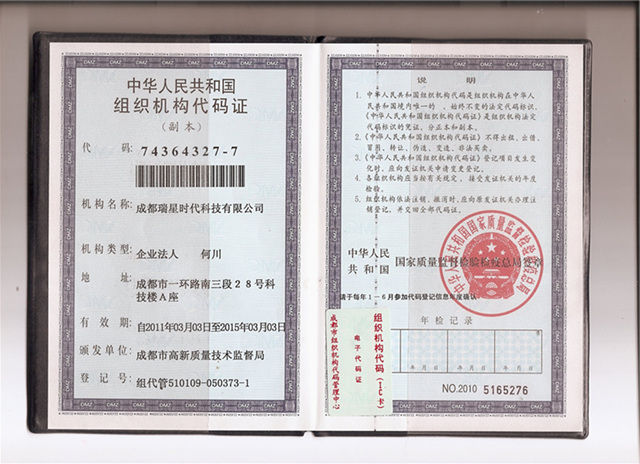 中华人民共和国
组织机构代码证
（副本）
代 码: 74364327-7
机构名称: 成都瑞星时代科技有限公司
机构类型: 企业法人 何川
地 址: 成都市一环路南三段28号科
技楼A座
有 效 期: 自2011年03月03日至2015年03月03日
颁发单位: 成都市高新质量技术监督局
登 记 号: 组代管510109-050373-1
说 明
1. 中华人民共和国组织机构代码是组织机构在中华人
民共和国境内唯一的、始终不变的法定代码标识，
《中华人民共和国组织机构代码证》是组织机构法定
代码标识的凭证，分正本和副本。
2. 《中华人民共和国组织机构代码证》不得出租、出借、
冒用、转让、伪造、变造、非法买卖。
3. 《中华人民共和国组织机构代码证》登记项目发生变
化时，应向发证机关申请变更登记。
4. 各组织机构应当按有关规定、接受发证机关的年度
检验。
5. 组织机构依法注销、撤消时，应向原发证机关办理注
销登记，并交回全部代码证。
中华人民
共和国
国家质量监督检验检疫总局签章
中华人民共和国国家质量监督检验检疫总局
请于每年1-6月参加代码登记信息年度确认
组织机构代码（IC卡）
电子代码证
成都市组织机构代码管理中心
年检记录
年 月 日
年 月 日
年 月 日
NO.2010 5165276